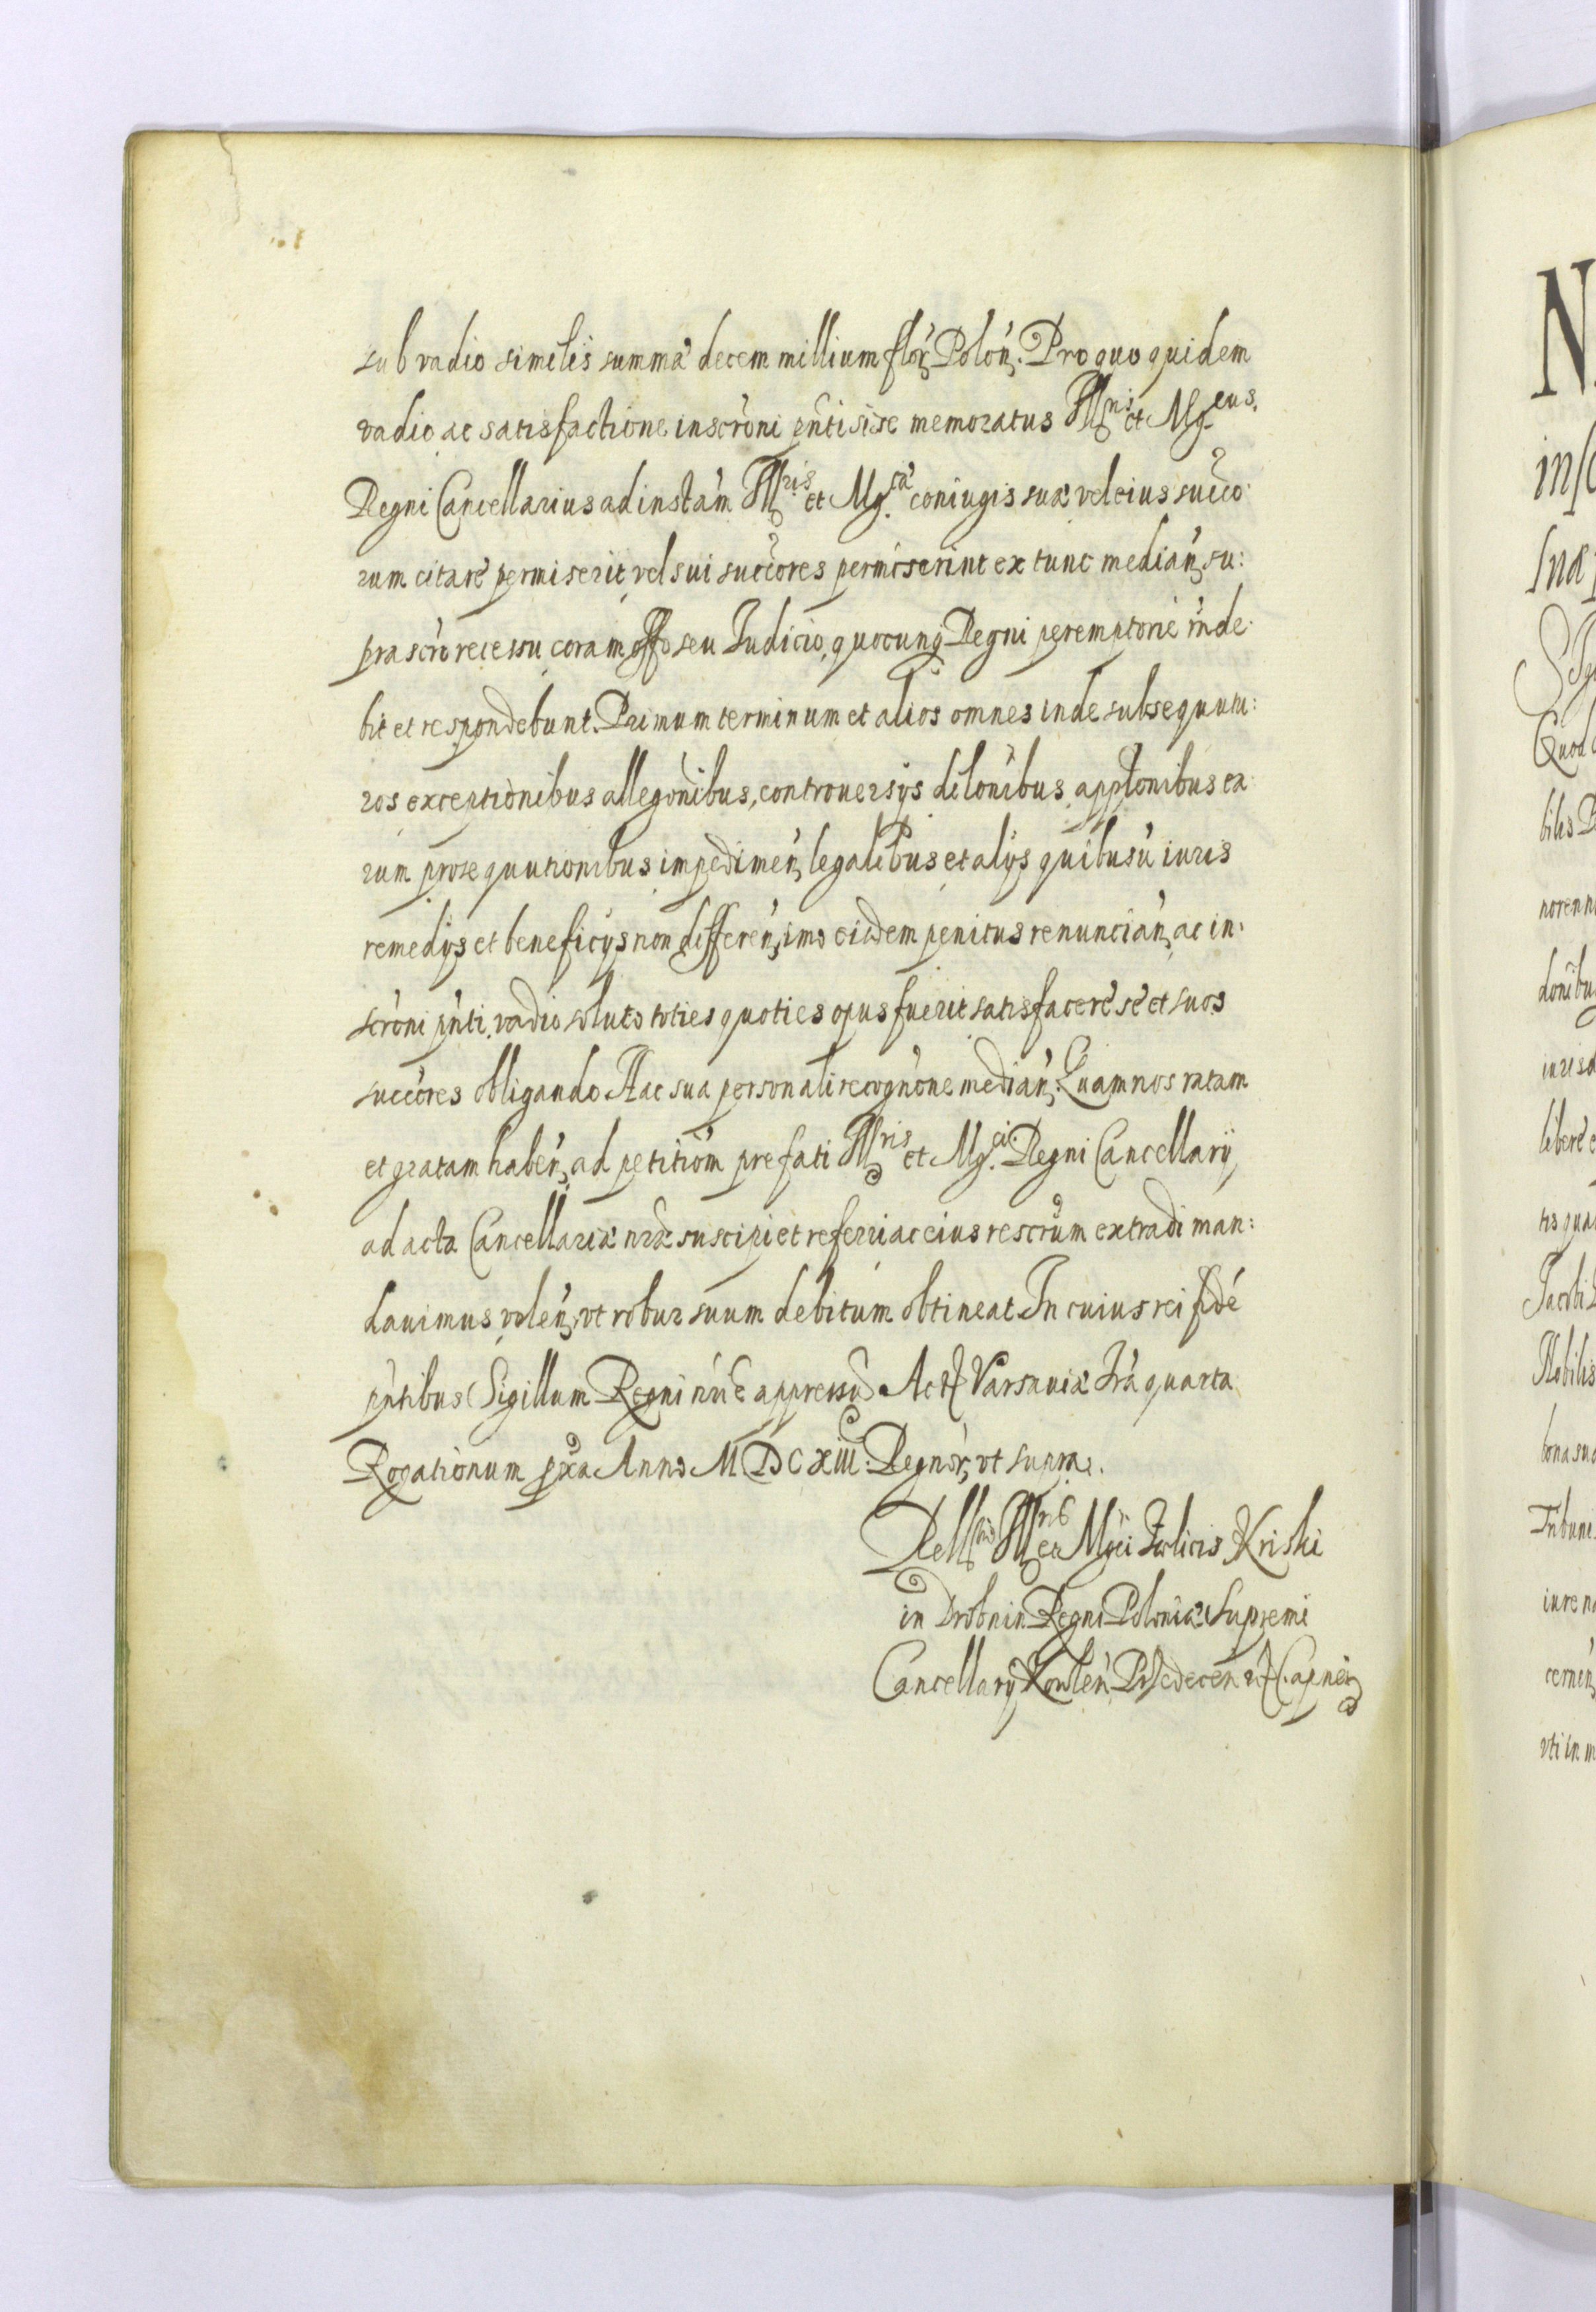 sub vadio similis summæ decem millium flor̃ Poloñ. Pro quo quidem
vadio ac satisfactione inscrõni pñti si se memoratus Ill. et Mg.cus
Regni Cancellarius ad instãm Illris et Mg.cæ coniugis suæ vel eius succo:
rum citare permiserit, vel sui succores permiserint ex tunc mediañ, su:
prascr̃o recessu coram offo seu Iudicio, quocunq̃ Regni peremptorie r̃nde:
bit et respondebunt. Primum terminum et alios omnes inde subsequutu:
ros exceptionibus allegõnibus, controuersijs dilõnibus appltonibus ea:
rum prosequutionibus impedimeñ, legalibus et alijs quibusũ iuris
remedijs et beneficijs non differeñ, imo eisdem penitus renunciañ, ac in:
scrõni pñti, vadio soluto toties quoties opus fuerit satisfacere se et suos
succores obligando Hac sua personali recognõne mediañ. Quam nos ratam
et gratam habeñ, ad petitiõm prefati Illris et Mg.ci Regni Cancellarij,
ad acta Cancellariæ nr̃æ suscipi et referri ac eius rescr̃um extradi man:
dauimus, voleñ, vt robur suum debitum obtineat In cuius rei fidẽ
pñtibus Sigillum Regni nr̃i ẽ appressũ. Act Varsauiæ Fr̃a quarta
Rogationum pxa Anno M.DC xiii: Regnor̃, vt supra.
Rello Illris et Mgci Foelicis Kriski
in Drobnin Regni Poloniæ Supremi
Cancellarij Kowleñ Prsedecen Capnei
N